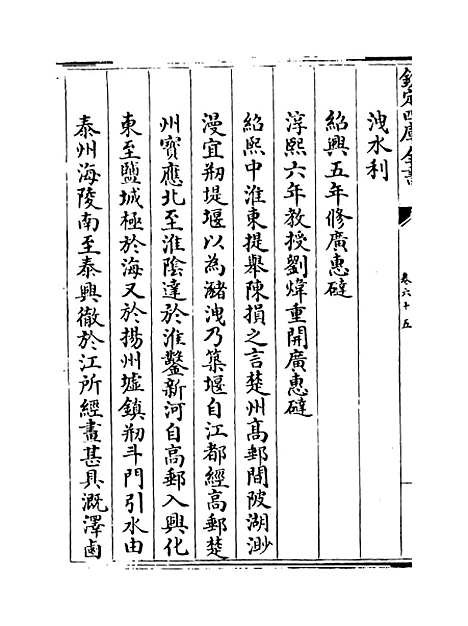 欽定四庫全書
卷六十五
洩水利
紹興五年修廣惠䃮
淳熙六年教授劉煒重開廣惠䃮
紹熙中淮東提舉陳損之言楚州髙郵間陂湖渺
漫宜剏堤堰以為瀦洩乃築堰自江都經高郵楚
州寳應北至淮隂達於淮鑿新河自高郵入興化
東至鹽城極於海又於揚州墟鎮剏斗門引水由
泰州海陵南至泰興徹於江所經畫甚具溉澤鹵